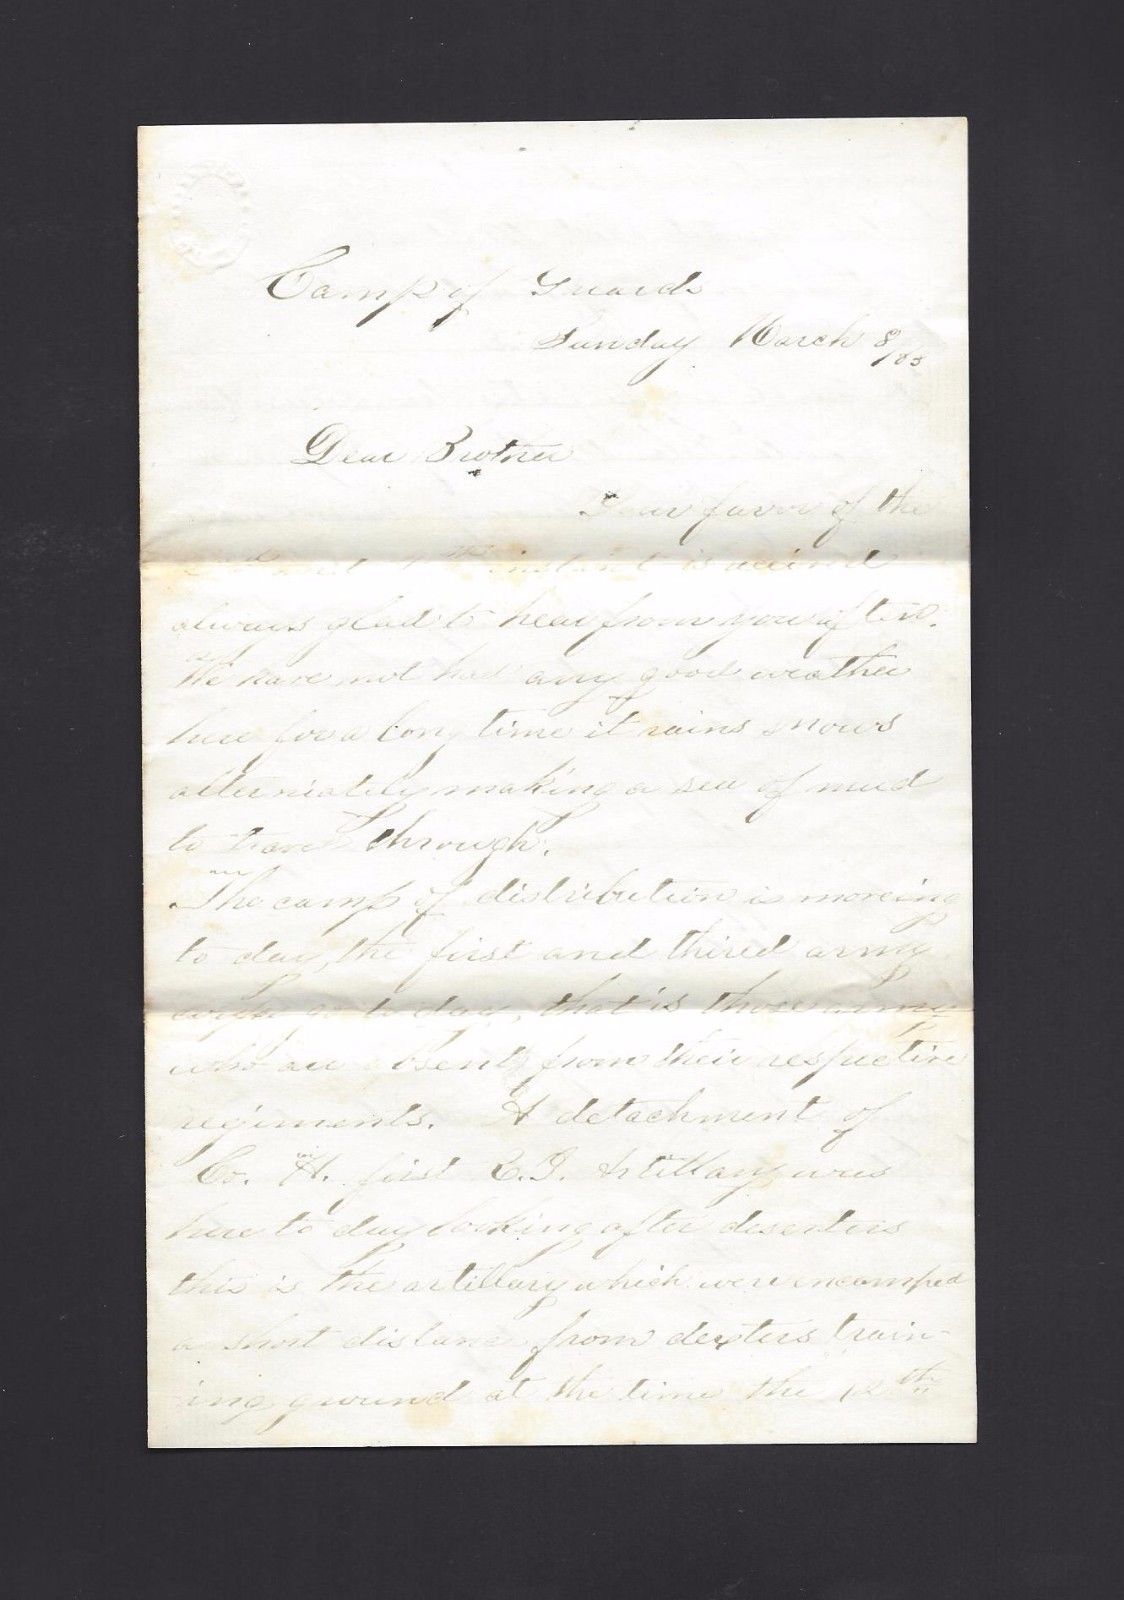 Camp of Guards
Sunday March 8/63
Dear Brother
Your favor of the
and instant is recieved
always glad to hear from you often.
We have not had any good weather
here for a long time it rains snows
alternately making a sea of mud
to travel through.
The camp of distribution is moveing
to day, the first and third army
go to day, that is those
who are absent from their respective
regiments. A detachment of
Co. H. first R.I. Artillary was
here to day looking after deserters
this is the artillary which were encamped
a short distance from dexters train-
ing ground at the time the 12th